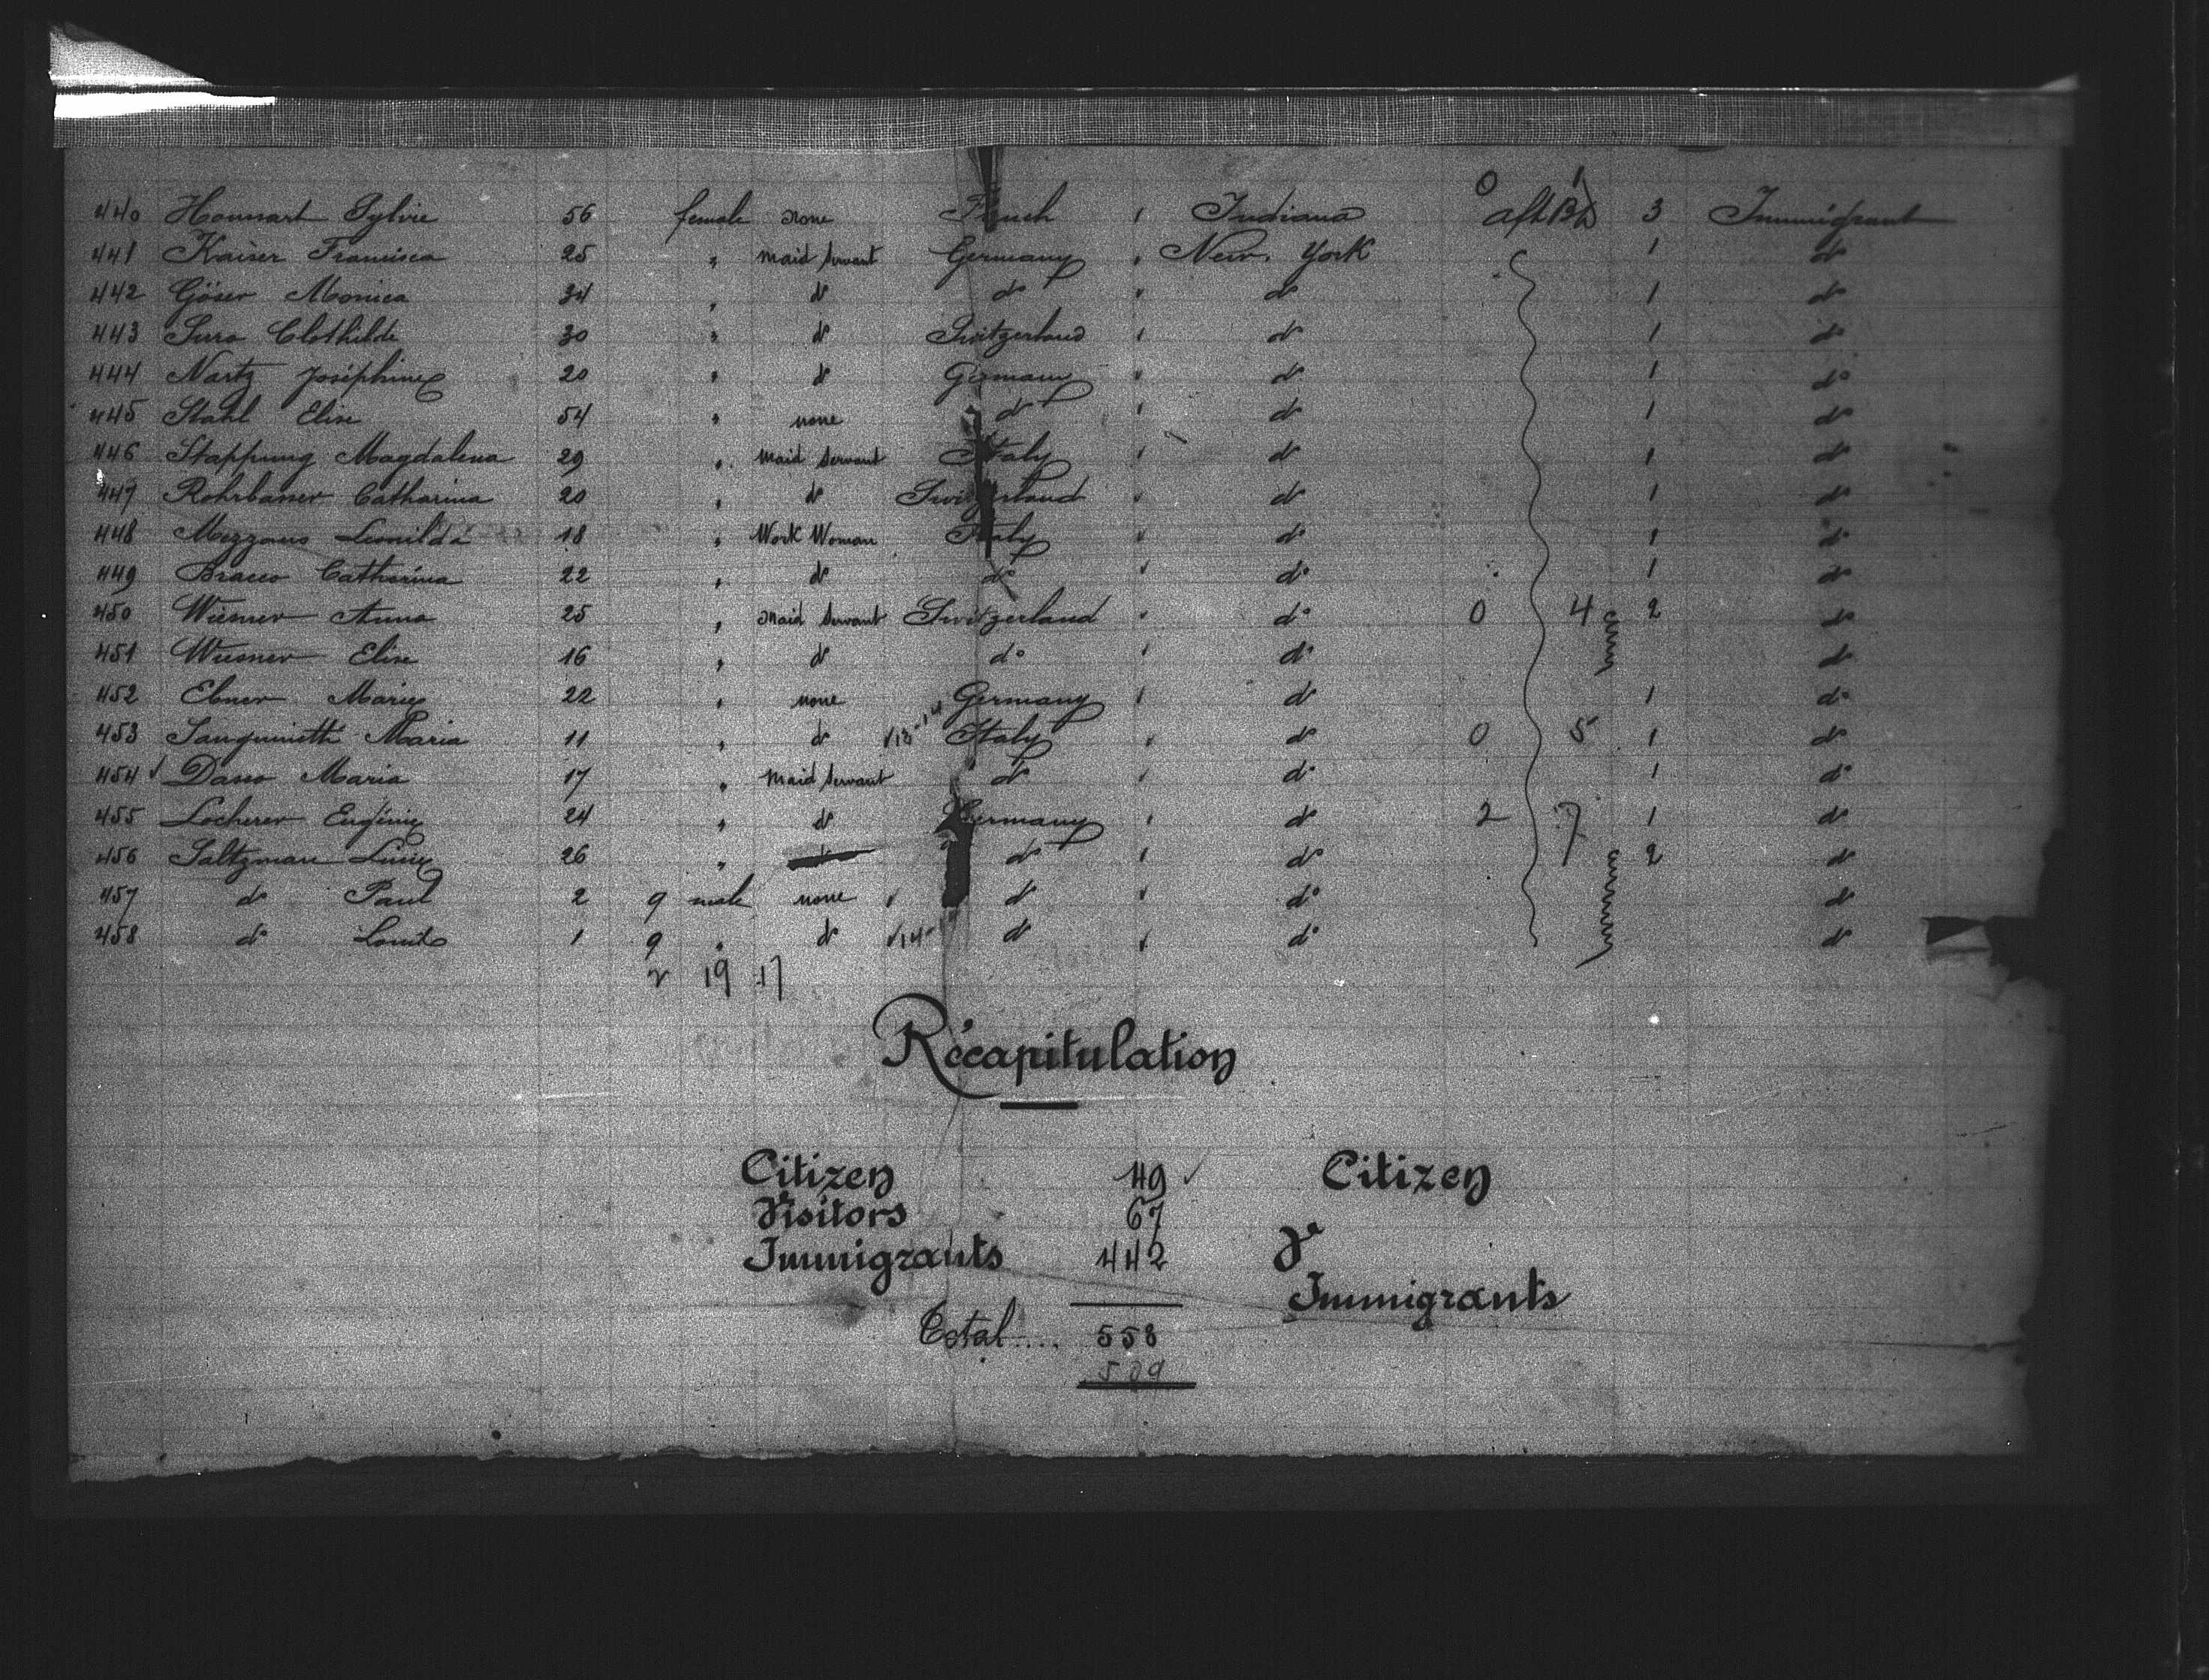 440 Honnart Sylvie 56 female none French " Indiana 0 aft Bk 3 Immigrant
441 Kaiser Francisca 25 " Maid Servant Germany " New. York 1 do
442 Göser Monica 34 " do do " do 1 do
443 Suro Clothilde 30 " do Switzerland " do 1 do
444 Nartz Joséphine 20 " do Germany " do 1 do
445 Stahl Elise 54 " none do " do 1 do
446 Stappung Magdalena 29 " Maid Servant Italy " do 1 do
447 Catharina 20 " do Switzerland " do 1 do
448 Mezzano Leonilda 18 " Work Woman Italy " do 1 do
449 Bracco Catharina 22 " do do " do 1 do
450 Wiesner Anna 25 " Maid Servant Switzerland " do 0 4 2 do
451 Wiesner Elise 16 " do do " do do
452 Ebner Marie 22 " none Germany " do 1 do
453 Sanguinetti Maria 11 " do Italy " do 0 5 1 do
454 √ Dasso Maria 17 " Maid Servant do " do 1 do
455 Locherer Eugénie 24 " do Germany " do 2 7 1 do
456 Saltzman Lucie 26 " do " do 2 do
457 do Paul 2 9 male none √ do " do do
458 do Louis 1 9 " do √14 do " do do
2 19 17
Récapitulation
Citizen 49 √ Citizen
Visitors 67 do
Immigrants 442
Immigrants
Total .... 558
509